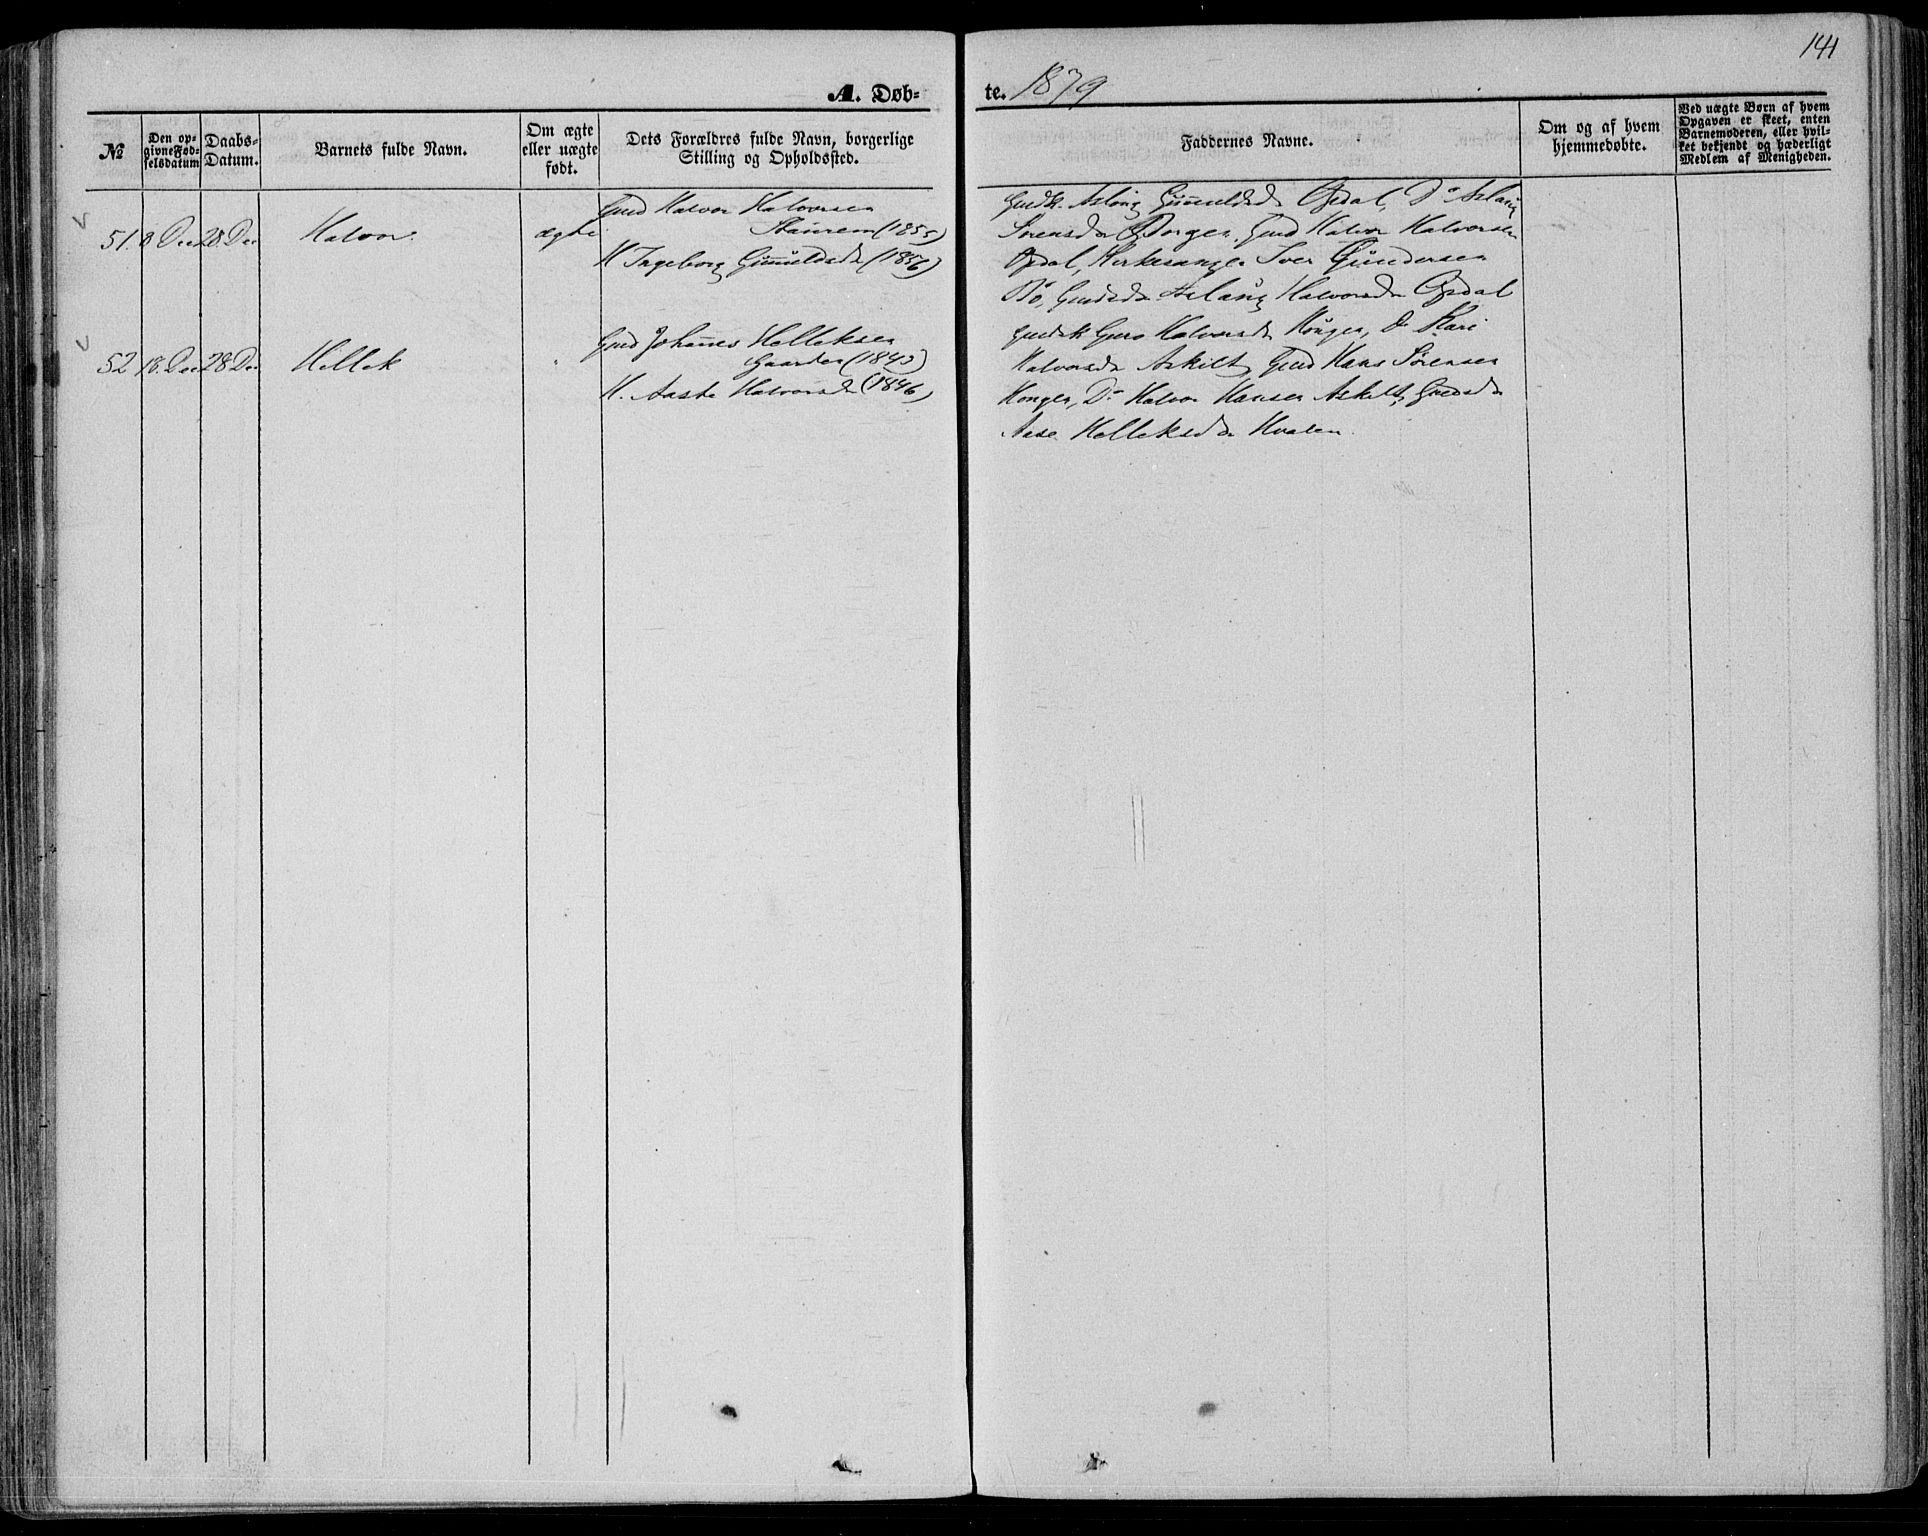 141
A. Døb-
te. 1879
№
Den op-
givne Fød-
selsdatum
Daabs-
Datum.
Barnets fulde Navn.
Om ægte
eller uægte
født.
Dets Forældres fulde Navn, borgerlige
Stilling og Opholdssted.
Faddernes Navne.
Om og af hvem
hjemmedøbte.
Ved uægte Børn af hvem
Opgaven er skeet, enten
Barnemoderen, eller hvil-
ket bekjendt og hæderligt
Medlem af Menigheden.
51. 8 Dec 28 Dec Halvor. ægte
Gmd Halvor Halvorsen
Staurem (1855)
K Ingeborg Gunnuldsd (1856)
Gmdk. Aslaug Gunnuldsd Opdal, Do Aslaug
Sørensd Borgen, Gmd Halvor Halvorsen
Opdal, Kirkesanger Iver Gundersen
Bø, Gmdsd Aslaug Halvorsd Opdal
52 18. Dec 28 Dec Hellek "
Gmd Johannes Helleksen
Gaarder (1843)
K. Aaste Halvorsd (1846)
Gmdsk Guro Halvorsd Konger, Do Kari
Halvorsd Askilt, Gmd Hans Sørensen
Konger, Do Halvor Hansen Askilt, Gmdsd
Aase Helleksd Hvalen.